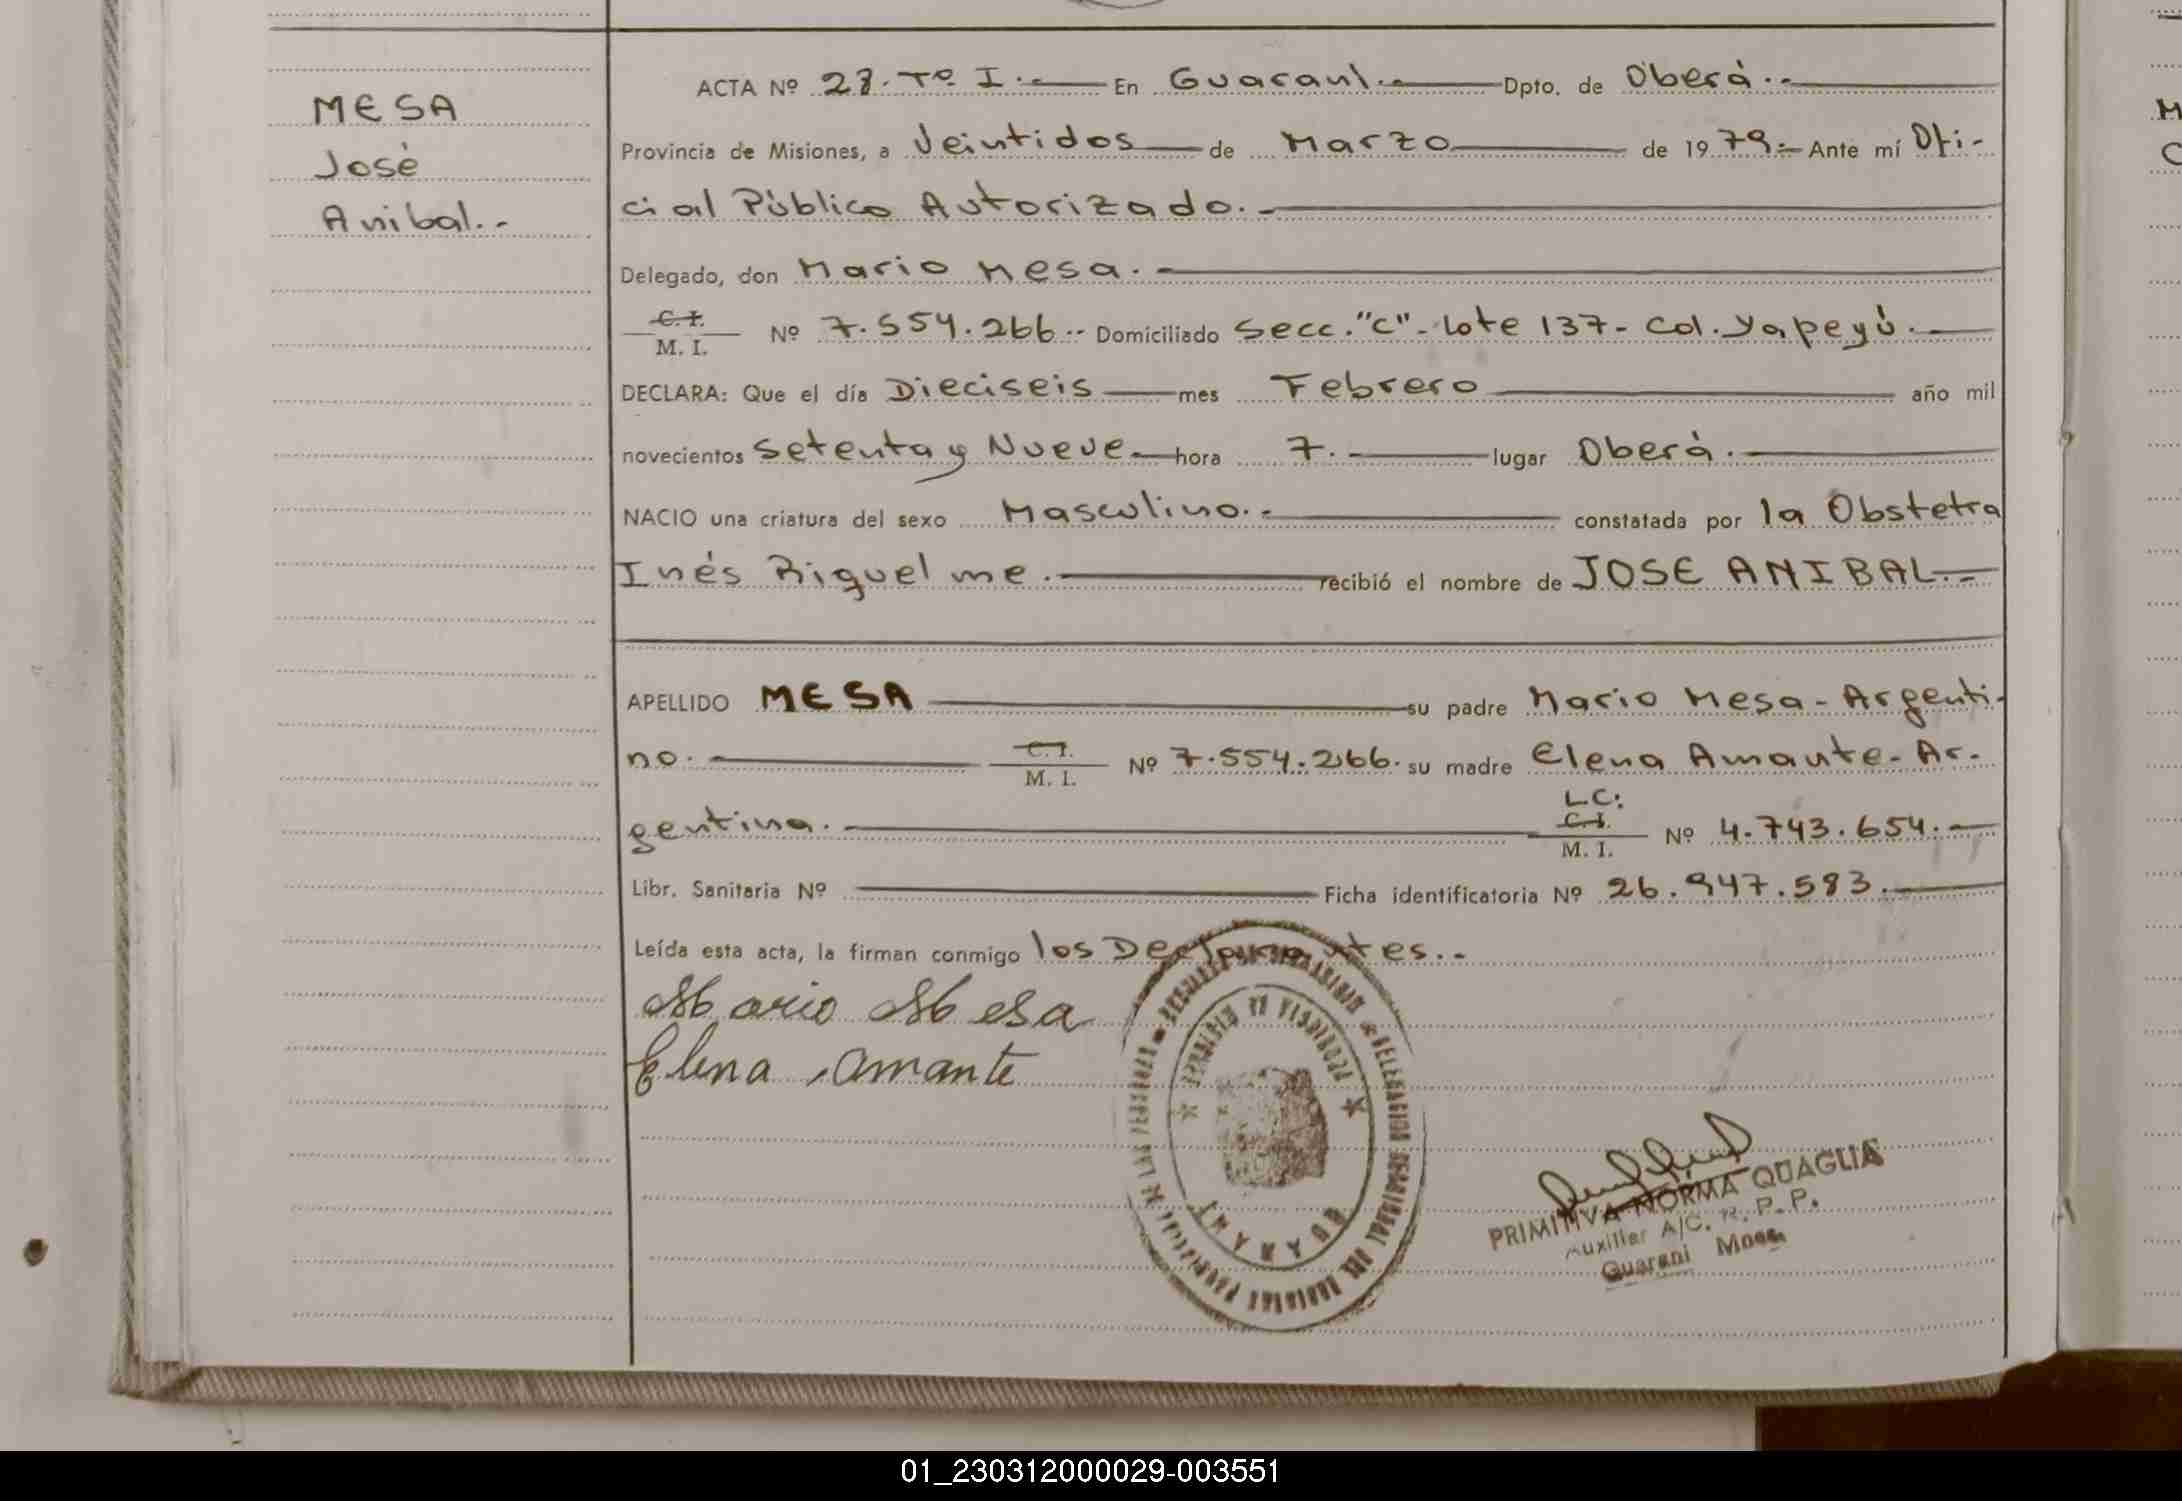 MESA
José
Anibal.-
ACTA Nº 27. Tº I.- En Guaraní.- Dpto. de Oberá.-
Provincia de Misiones, a Veintidos de Marzo de 1979.- Ante mí Ofi-
cial Público Autorizado.-
Delegado, don Mario Mesa.-
C. I.
M. I. Nº 7.554.266.- Domiciliado Secc."C"- Lote 137- Col. Yapeyú.-
DECLARA: Que el día Dieciseis mes Febrero año mil
novecientos Setenta y Nueve hora 7.- lugar Oberá.-
NACIO una criatura del sexo Masculino.- constatada por la Obstetra
Inés Riquelme.- recibió el nombre de JOSE ANIBAL.-
APELLIDO MESA su padre Mario Mesa- Argenti-
no.- C. I.
M. I. Nº 7.554.266. su madre Elena Amante- Ar-
gentina.- L.C:
C. I.
M. I. Nº 4.743.654.-
Libr. Sanitaria Nº Ficha identificatoria Nº 26.947.583.-
Leída esta acta, la firman conmigo los Declarantes.-
Mario Mesa
Elena Amante
PROVINCIA DE MISIONES
GUARANI
PRIMITIVA NORMA QUAGLIA
Auxiliar A/C. R. P. P.
Guarani Mnes.
01_230312000029-003551